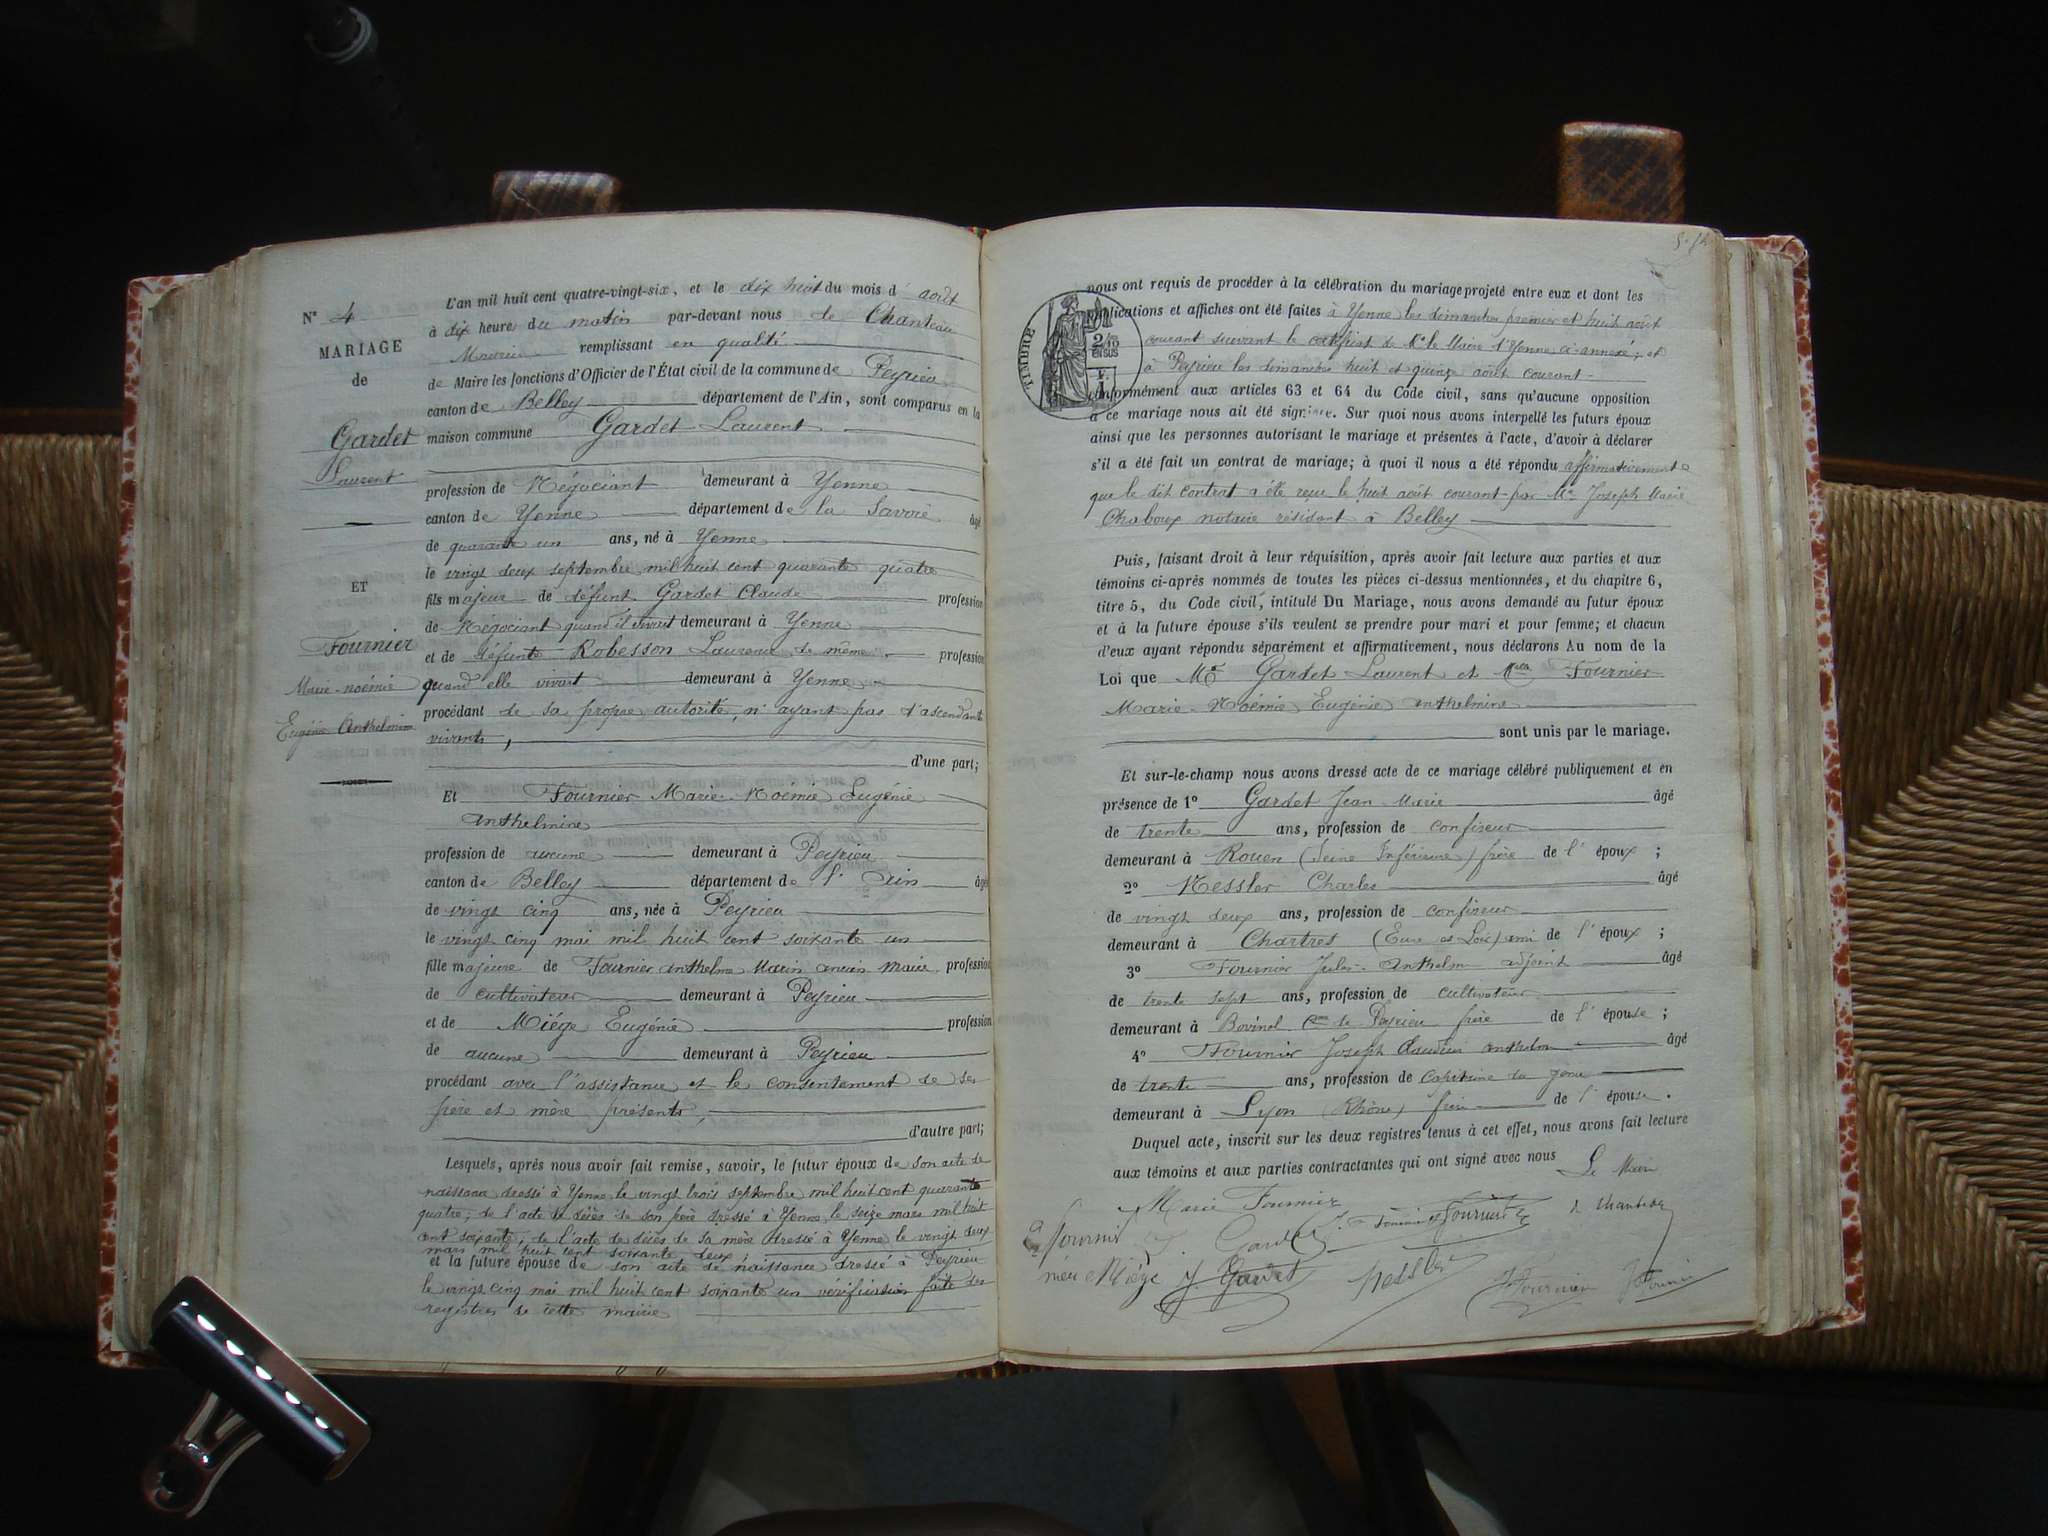 N° 4
MARIAGE
de
Gardet
Laurent
ET
Fournier
Marie-noémie
Eugénie Anthelmine
L'an mil huit cent quatre-vingt-six, et le dix huit du mois d' août
à dix heure du matin par-devant nous de Chanteau
Maurice remplissant en qualité
de Maire les fonctions d'Officier de l'État civil de la commune de Peyrieu
canton de Belley département de l'Ain, sont comparus en la
maison commune Gardet Laurent
profession de Négociant demeurant à Yenne
canton de Yenne département de la Savoie âgé
de quarante un ans, né à Yenne
le vingt deux septembre mil huit cent quarante quatre
fils majeur de défunt Gardet Claude profession
de Négociant quand il vivait demeurant à Yenne
et de défunte Robesson Laurence de même profession
quand elle vivait demeurant à Yenne
procédant de sa propre autorité, n'ayant pas d'ascendants
vivants,
d'une part;
Et Fournier Marie-Noémie Eugénie
Anthelmine
profession de aucune demeurant à Peyrieu
canton de Belley département de l' Ain âgé
de vingt cinq ans, née à Peyrieu
le vingt cinq mai mil huit cent soixante un
fille majeure de Fournier Anthelme Marin ancien maire profession
de cultivateur demeurant à Peyrieu
et de Miége Eugénie profession
de aucune demeurant à Peyrieu
procédant avec l'assistance et le consentement de ses
père et mère présents,
d'autre part;
Lesquels, après nous avoir fait remise, savoir, le futur époux de son acte de
naissance dressé à Yenne le vingt trois septembre mil huit cent quarante
quatre; de l'acte de décès de son père dressé à Yenne le seize mars mil huit
cent soixante; de l'acte de décès de sa mère dressé à Yenne le vingt deux
mars mil huit cent soixante deux;
et la future épouse de son acte de naissance dressé à Peyrieu
le vingt cinq mai mil huit cent soixante un vérification faite des
registres de cette mairie
nous ont requis de procéder à la célébration du mariage projeté entre eux et dont les
publications et affiches ont été faites à Yenne les dimanches premier et huit août
courant suivant le certificat de Mr le Maire d'Yenne ci-annexé; et
à Peyrieu les dimanches huit et quinze août courant
TIMBRE
2/10 EN SUS
conformément aux articles 63 et 64 du Code civil, sans qu'aucune opposition
à ce mariage nous ait été signifiée. Sur quoi nous avons interpellé les futurs époux
ainsi que les personnes autorisant le mariage et présentes à l'acte, d'avoir à déclarer
s'il a été fait un contrat de mariage; à quoi il nous a été répondu affirmativement
que le dit contrat a été reçu le huit août courant par Me Joseph Marie
Chaboux notaire résidant à Belley
Puis, faisant droit à leur réquisition, après avoir fait lecture aux parties et aux
témoins ci-après nommés de toutes les pièces ci-dessus mentionnées, et du chapitre 6,
titre 5, du Code civil, intitulé Du Mariage, nous avons demandé au futur époux
et à la future épouse s'ils veulent se prendre pour mari et pour femme; et chacun
d'eux ayant répondu séparément et affirmativement, nous déclarons Au nom de la
Loi que Mr Gardet Laurent et Melle Fournier
Marie-Noémie Eugénie Anthelmine
sont unis par le mariage.
Et sur-le-champ nous avons dressé acte de ce mariage célébré publiquement et en
présence de 1° Gardet Jean Marie âgé
de trente ans, profession de confiseur
demeurant à Rouen (Seine Inférieure) frère de l' époux;
2° Nessler Charles âgé
de vingt deux ans, profession de confiseur
demeurant à Chartres (Eure et Loir) ami de l' époux;
3° Fournier Jules-Anthelme adjoint âgé
de trente sept ans, profession de cultivateur
demeurant à Bovinel Cne de Peyrieu frère de l' épouse;
4° Fournier Joseph Claudius Anthelme âgé
de trente ans, profession de capitaine du génie
demeurant à Lyon (Rhône) frère de l' épouse.
Duquel acte, inscrit sur les deux registres tenus à cet effet, nous avons fait lecture
aux témoins et aux parties contractantes qui ont signé avec nous Le Maire
Marie Fournier
Fournier
Gardet
Fournier
née Miége
J. Gardet
Nessler
JFournier